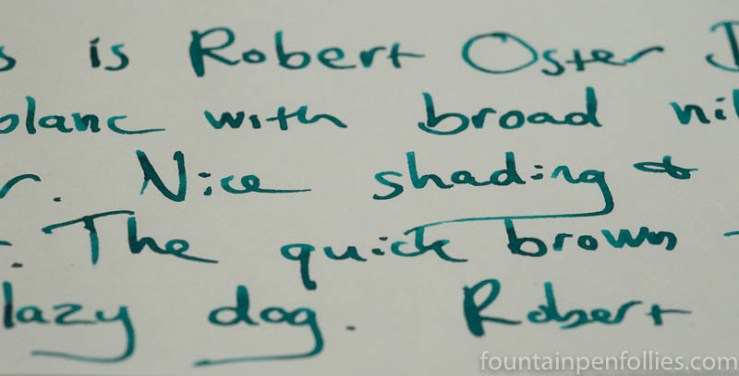 s is Robert Oster
blanc with broad ni
r. Nice shading &
. The quick brown
lazy dog. Robert
fountainpenfollies.com